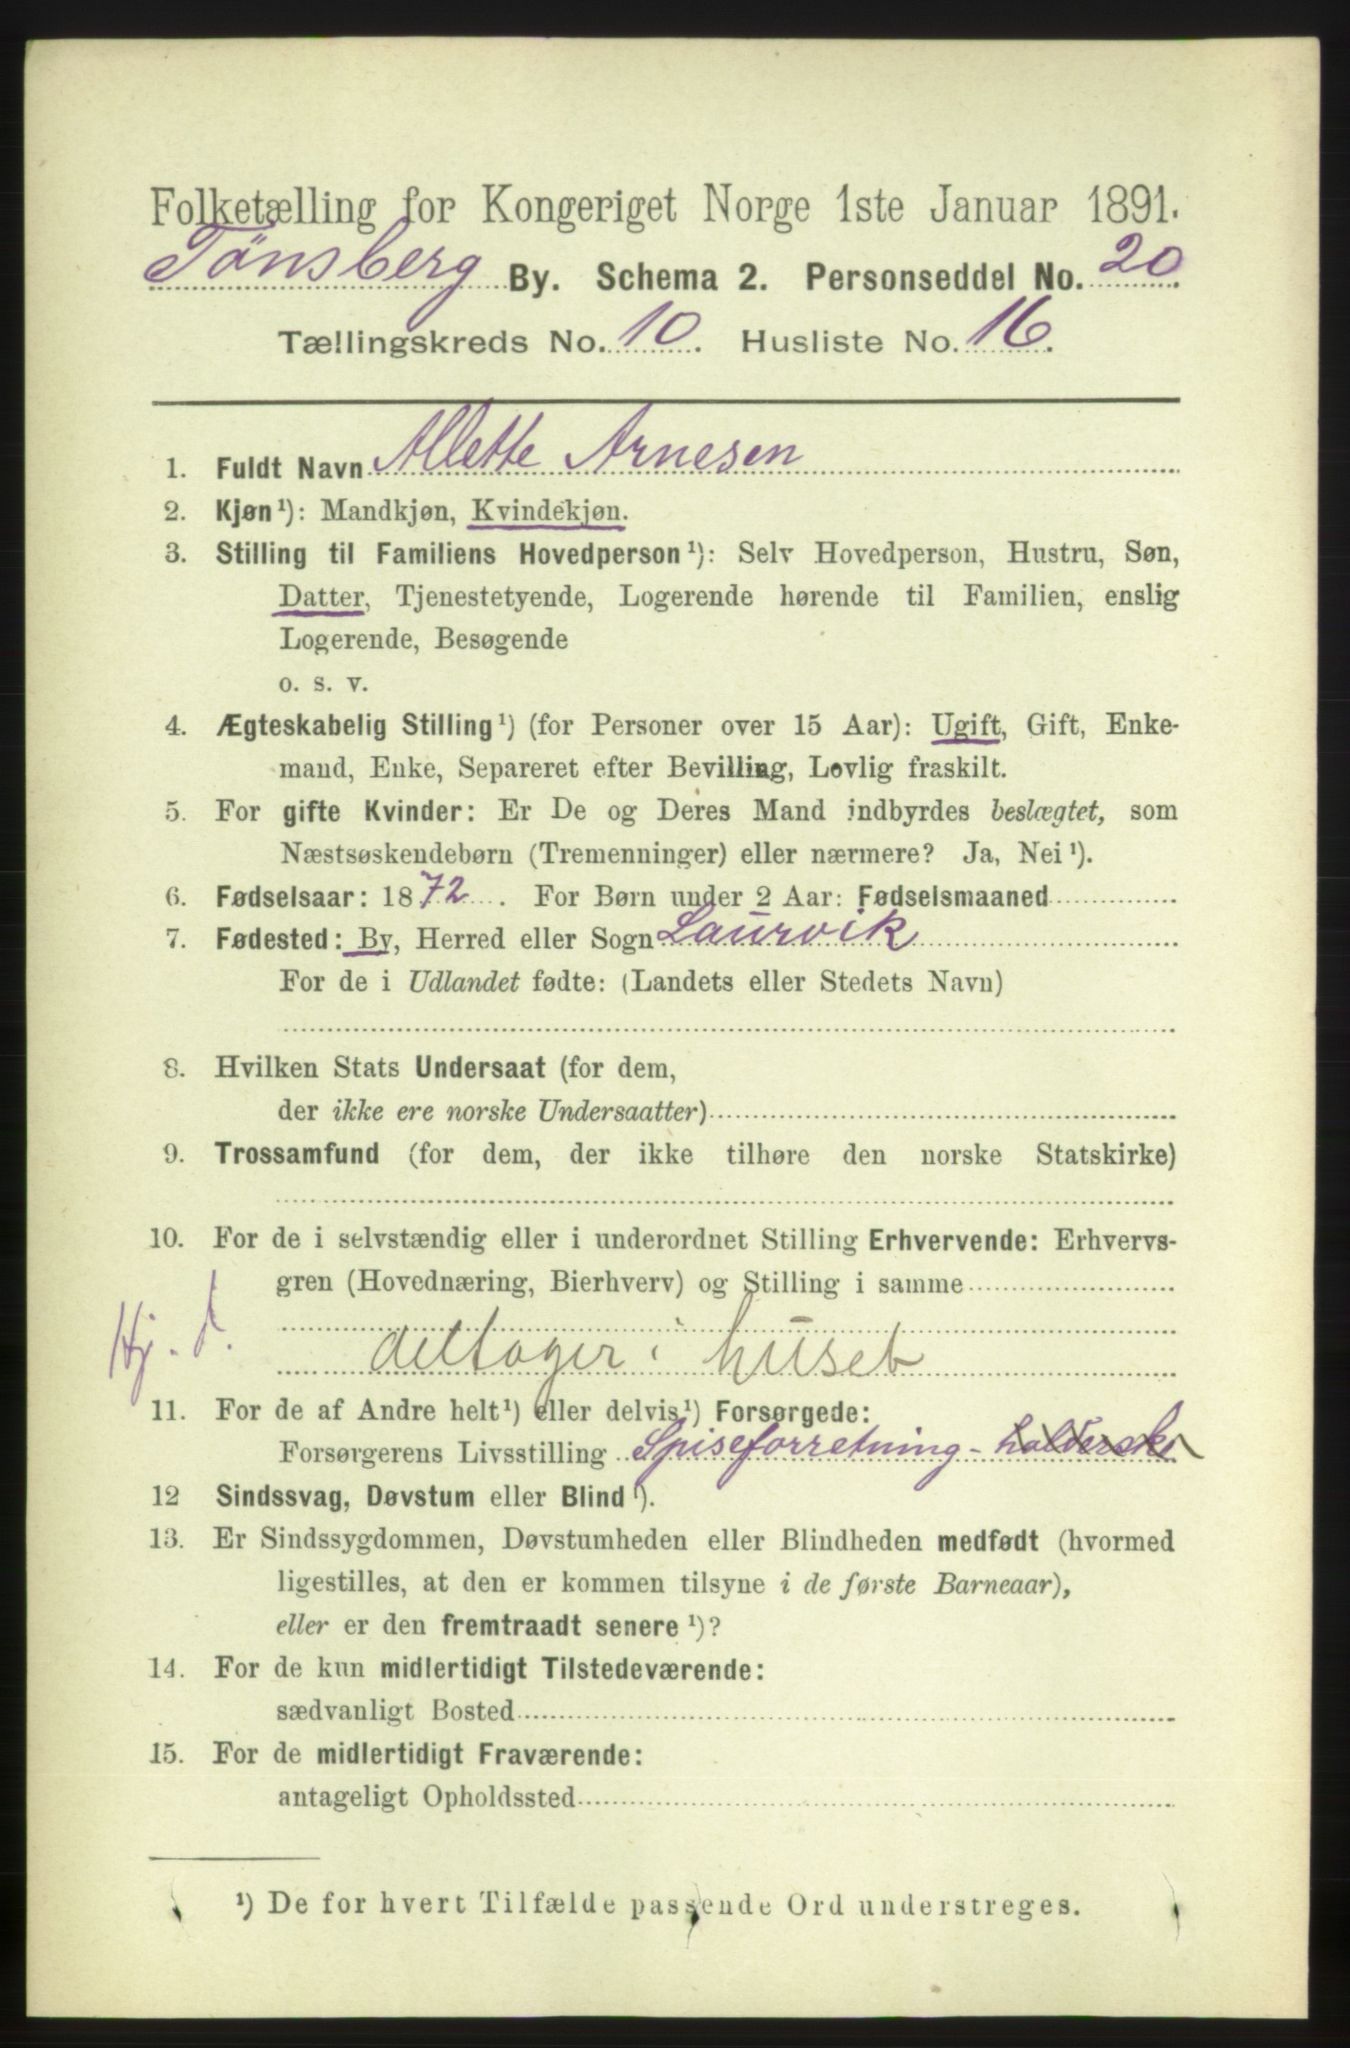 Folketælling for Kongeriget Norge 1ste Januar 1891.
Tønsberg By. Schema 2. Personseddel No. 20
Tællingskreds No. 10. Husliste No. 16.
1. Fuldt Navn Alette Arnesen
2. Kjøn¹): Mandkjøn, Kvindekjøn.
3. Stilling til Familiens Hovedperson¹): Selv Hovedperson, Hustru, Søn,
Datter, Tjenestetyende, Logerende hørende til Familien, enslig
Logerende, Besøgende
o. s. v.
4. Ægteskabelig Stilling¹) (for Personer over 15 Aar): Ugift, Gift, Enke-
mand, Enke, Separeret efter Bevilling, Lovlig fraskilt.
5. For gifte Kvinder: Er De og Deres Mand indbyrdes beslægtet, som
Næstsøskendebørn (Tremenninger) eller nærmere? Ja, Nei¹).
6. Fødselsaar: 1872. For Børn under 2 Aar: Fødselsmaaned
7. Fødested: By, Herred eller Sogn Laurvik
For de i Udlandet fødte: (Landets eller Stedets Navn)
8. Hvilken Stats Undersaat (for dem,
der ikke ere norske Undersaatter)
9. Trossamfund (for dem, der ikke tilhøre den norske Statskirke)
10. For de i selvstændig eller i underordnet Stilling Erhvervende: Erhvervs-
gren (Hovednæring, Bierhverv) og Stilling i samme
Hj. d. deltager i huset
11. For de af Andre helt¹) eller delvis¹) Forsørgede:
Forsørgerens Livsstilling Spiseforretning-holderske
12 Sindssvag, Døvstum eller Blind¹).
13. Er Sindssygdommen, Døvstumheden eller Blindheden medfødt (hvormed
ligestilles, at den er kommen tilsyne i de første Barneaar),
eller er den fremtraadt senere¹)?
14. For de kun midlertidigt Tilstedeværende:
sædvanligt Bosted
15. For de midlertidigt Fraværende:
antageligt Opholdssted
¹) De for hvert Tilfælde passende Ord understreges.